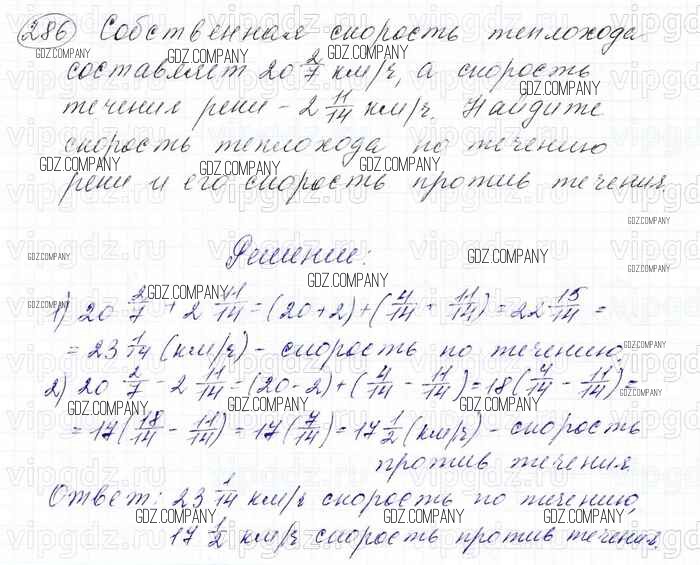 286 Собственная скорость теплохода
составляет 20 2/7 км/ч, а скорость
течения реки - 2 11/14 км/ч. Найдите
скорость теплохода по течению
реки и его скорость против течения.
Решение:
1) 20 2/7 + 2 11/14 = (20+2)+(4/14 + 11/14) = 22 15/14 =
= 23 1/14 (км/ч) - скорость по течению.
2) 20 2/7 - 2 11/14 = (20-2)+(4/14 - 11/14) = 18(4/14 - 11/14) =
= 17(18/14 - 11/14) = 17(7/14) = 17 1/2 (км/ч) - скорость
против течения
Ответ: 23 1/14 км/ч скорость по течению,
17 1/2 км/ч скорость против течения.